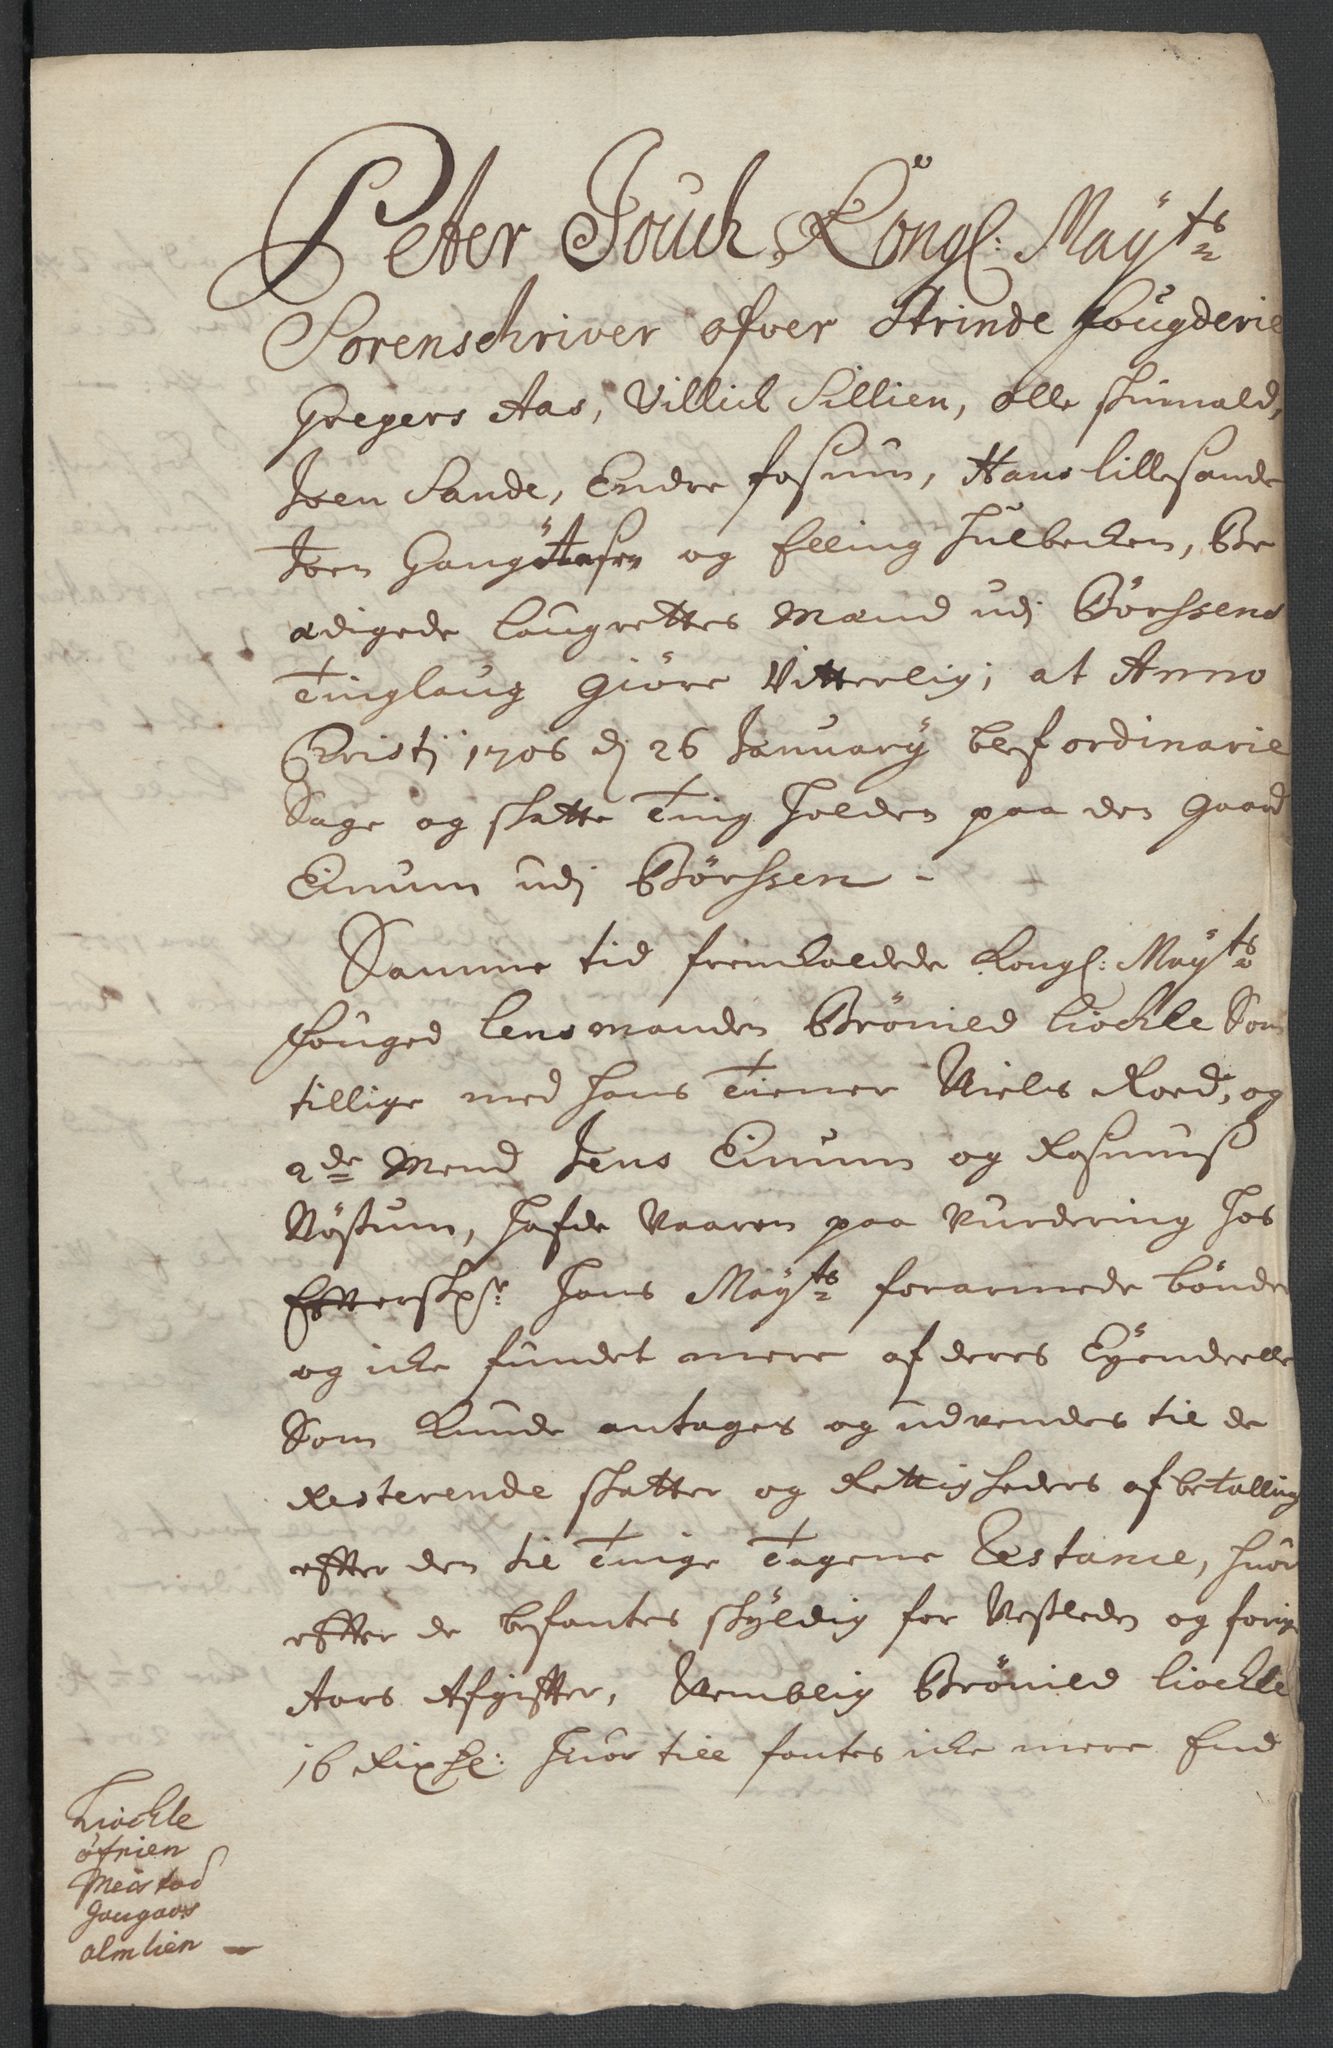 Peter Jouch, Kongl: Mayts
Sorenschriver ofver Strinde fougderie
Gregers Aas, Villich Sillien, Olle
Joen Sande, Endre fossum, Hans lillesande
Joen og Elling Hulbecken, Be
ædigede laugrettes Mænd udj Börssens
Tinglaug Giöre Vitterlig; at Anno
Christj 1706 dj 26 January blef ordinarie
Sage og skatte Ting holden paa den gaard
Einum udj Börssen -
Samme tid fremkaldede Kongl: Mayts
fouged lensmanden Brönild kiochle Som
tillige med hans Tiener Niels Roed, og
2de Mend Jens Einum og Rasmus
Nössum, hafde Vaaren paa Vurdering hos
hans Mayts forarmede bönder
og icke fundet mere af deres Eÿendeelle
Som kunde antages og udvendes til de
Resterende skatter og Rettigheders afbetalling
efter den til Tinge Tagene Restance, huor
efter de befantes skÿldig for Nestleden og forige
Aars Afgifter, Nemblig Brönild kiochle
16 Rixdl: huor till fantes icke mere End
kiochle
öfrien
Meistad
gaugaas
almlien —